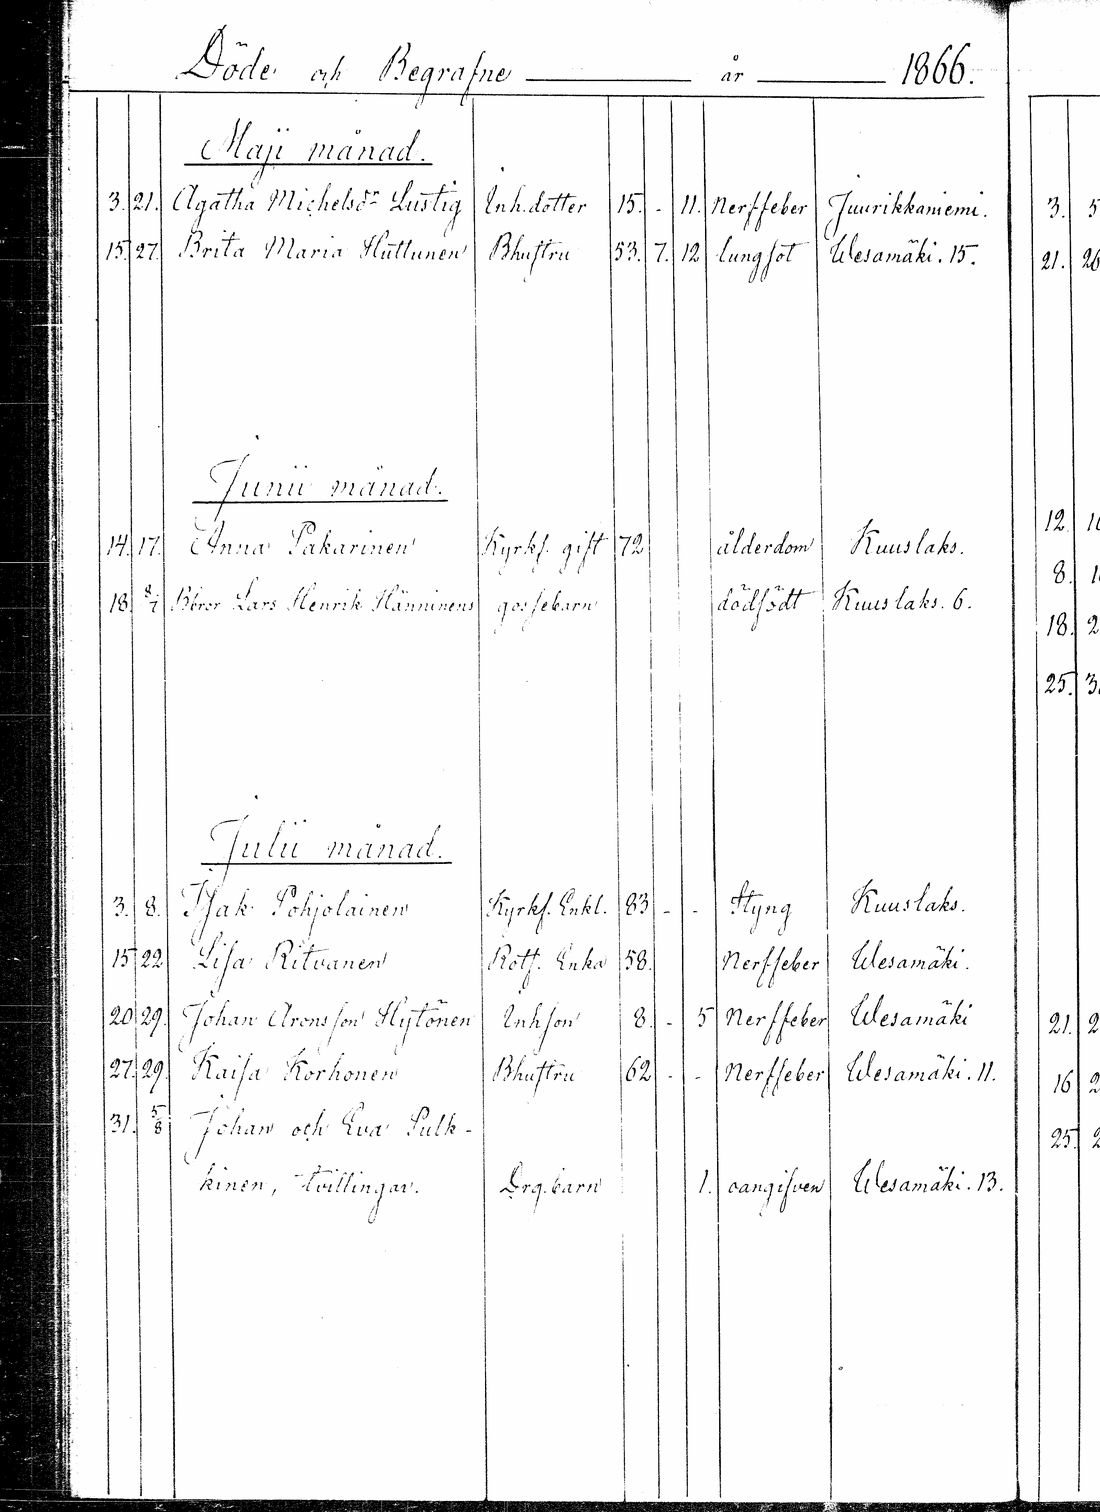 Döde och Begrafne år 1866.
Maji månad.
3. 21. Agatha Michelsdr Lustig Inh.dotter 15. - 11. Nerffeber Juurikkaniemi.
15. 27. Brita Maria Huttunen Bhustru 53. 7. 12 lungsot Wesamäki. 15.
Junii månad.
14. 17. Anna Pakarinen Kyrkf. gift 72 ålderdom Kuuslaks.
18. 8/7 Bbror Lars Henrik Hänninens gossebarn dödfödt Kuuslaks. 6.
Julii månad.
3. 8. Isak Pohjolainen Kyrkf. Enkl. 83 - - Styng Kuuslaks.
15 22 Lisa Ritvanen Rotf. Enka 58. Nerffeber Wesamäki.
20 29. Johan Aronsson Hytönen Inhson 8. - 5 Nerffeber Wesamäki
27. 29. Kaisa Korhonen Bhustru 62 - - Nerffeber Wesamäki. 11.
31. 5/8 Johan och Eva Pulk-
kinen, tvillingar. Drg.barn 1. oangifven Wesamäki. 13.
3. 5
21. 26
12. 1
8. 1
18. 2
25. 3
21. 2
16 2
25. 2